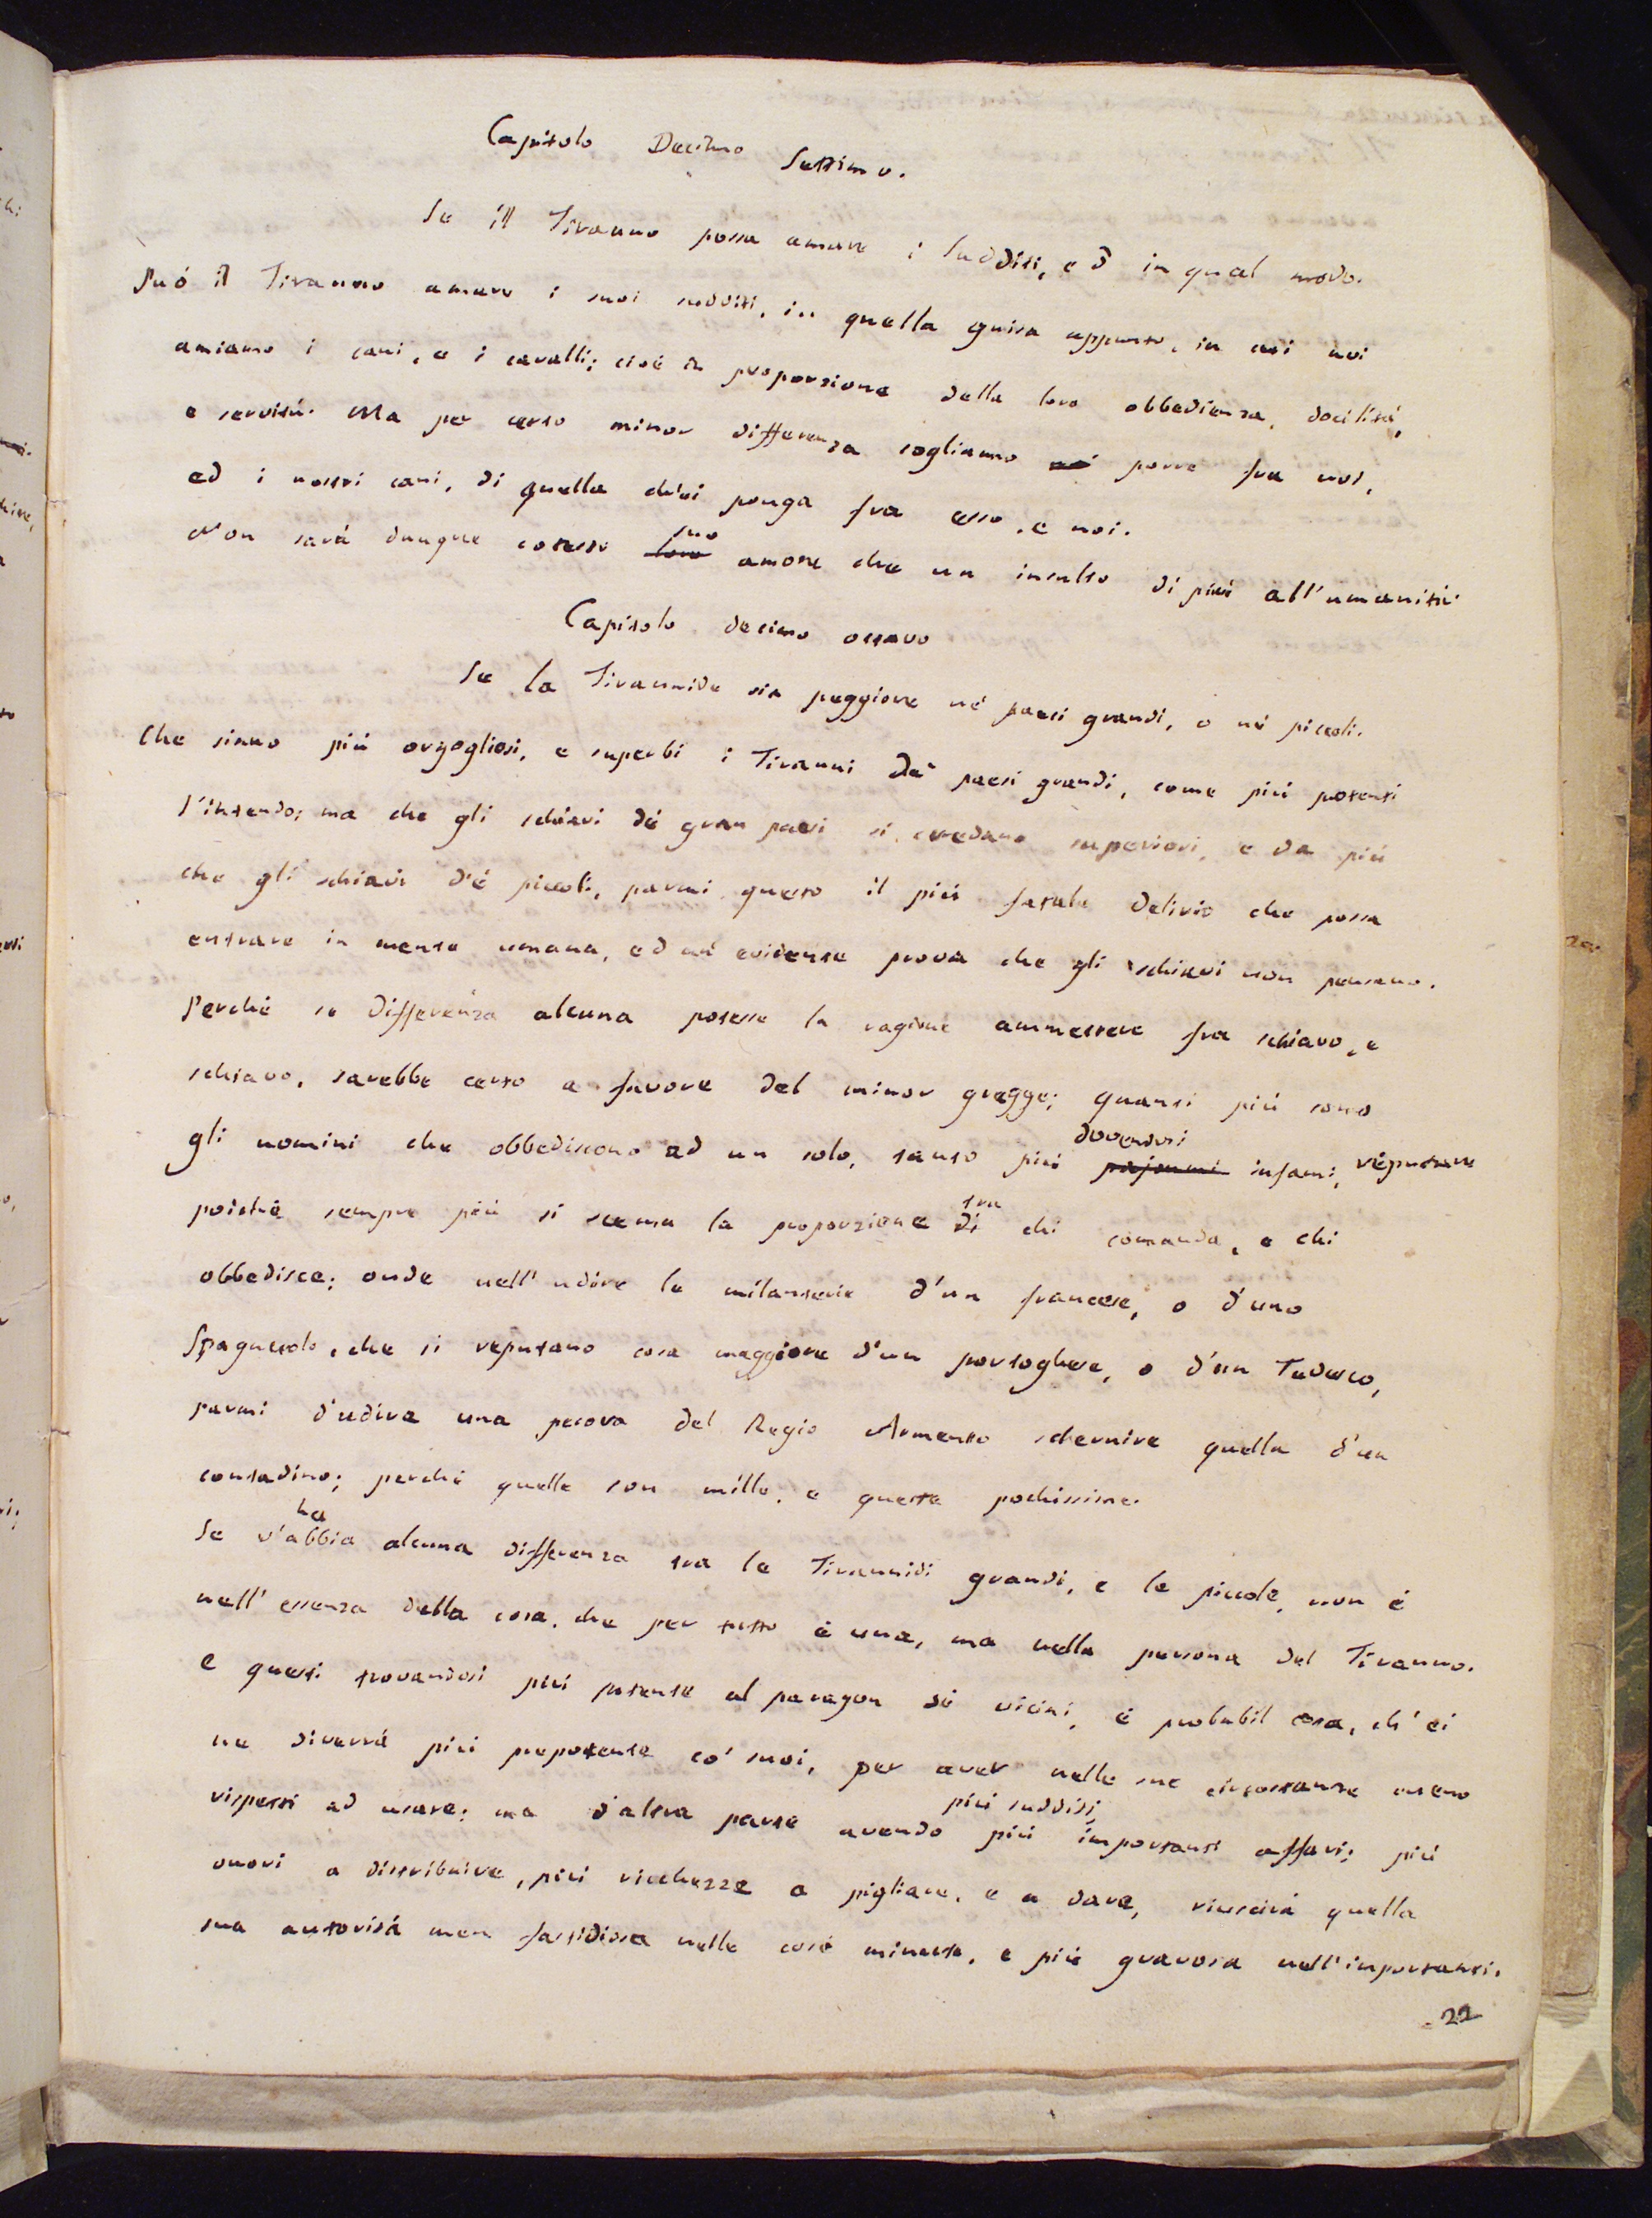 Capitolo Decimo Settimo.
Se il Tiranno possa amare i sudditi, ed in qual modo.
Può il Tiranno amare i suoi sudditi, in quella guisa appunto, in cui noi
amiamo i cani, e i cavalli; cioè in proporzione della loro obbedienza, docilità,
e servitù. Ma per certo minor differenza sogliamo noi porre fra noi,
ed i nostri cani, di quella ch'ei ponga fra esso, e noi.
suo
Non sarà dunque cotesto loro amore che un insulto di più all'umanità.
Capitolo decimo ottavo
Se la Tirannide sia peggiore nè paesi grandi, o nè piccoli.
Che siano più orgogliosi, e superbi i Tiranni de' paesi grandi, come più potenti
l'intendo; ma che gli schiavi dè gran paesi si credano superiori, e da più
che gli schiavi d'è piccoli, parmi questo il più fatale delirio che possa
entrare in mente umana, ed un' evidente prova che gli schiavi non pensano.
Perchè se differenza alcuna potesse la ragione ammettere fra schiavo, e
schiavo, sarebbe certo a favore del minor gregge; quanti più sono
dovendosi
gli uomini che obbediscono ad un solo, tanto più infami, reputare
tra
poichè sempre più si scema la proporzione di chi comanda, e chi
obbedisce; onde nell'udire le millanterie d'un francese, o d'uno
Spagnuolo, che si reputano cosa maggiore d'un portoghese, o d'un Tedesco,
parmi d'udire una pecora del Regio Armento schernire quella d'un
contadino; perchè quelle son mille, e queste pochissime.
ha
Se v'abbia alcuna differenza tra le Tirannidi grandi, e le piccole, non è
nell'essenza della cosa, che per tutto è una, ma nella persona del Tiranno.
e questi trovandosi più potente al paragon dè vicini, è probabil cosa, ch'ei
ne diverrà più prepotente co' suoi, per aver nelle sue circostanze meno
più sudditi,
rispetti ad usare; ma d'altra parte avendo più importanti affari; più
onori a distribuire, più ricchezze a pigliare, e a dare, riuscirà quella
sua autorità men fastidiosa nelle cose minute, e più gravosa nell'importanti.
22